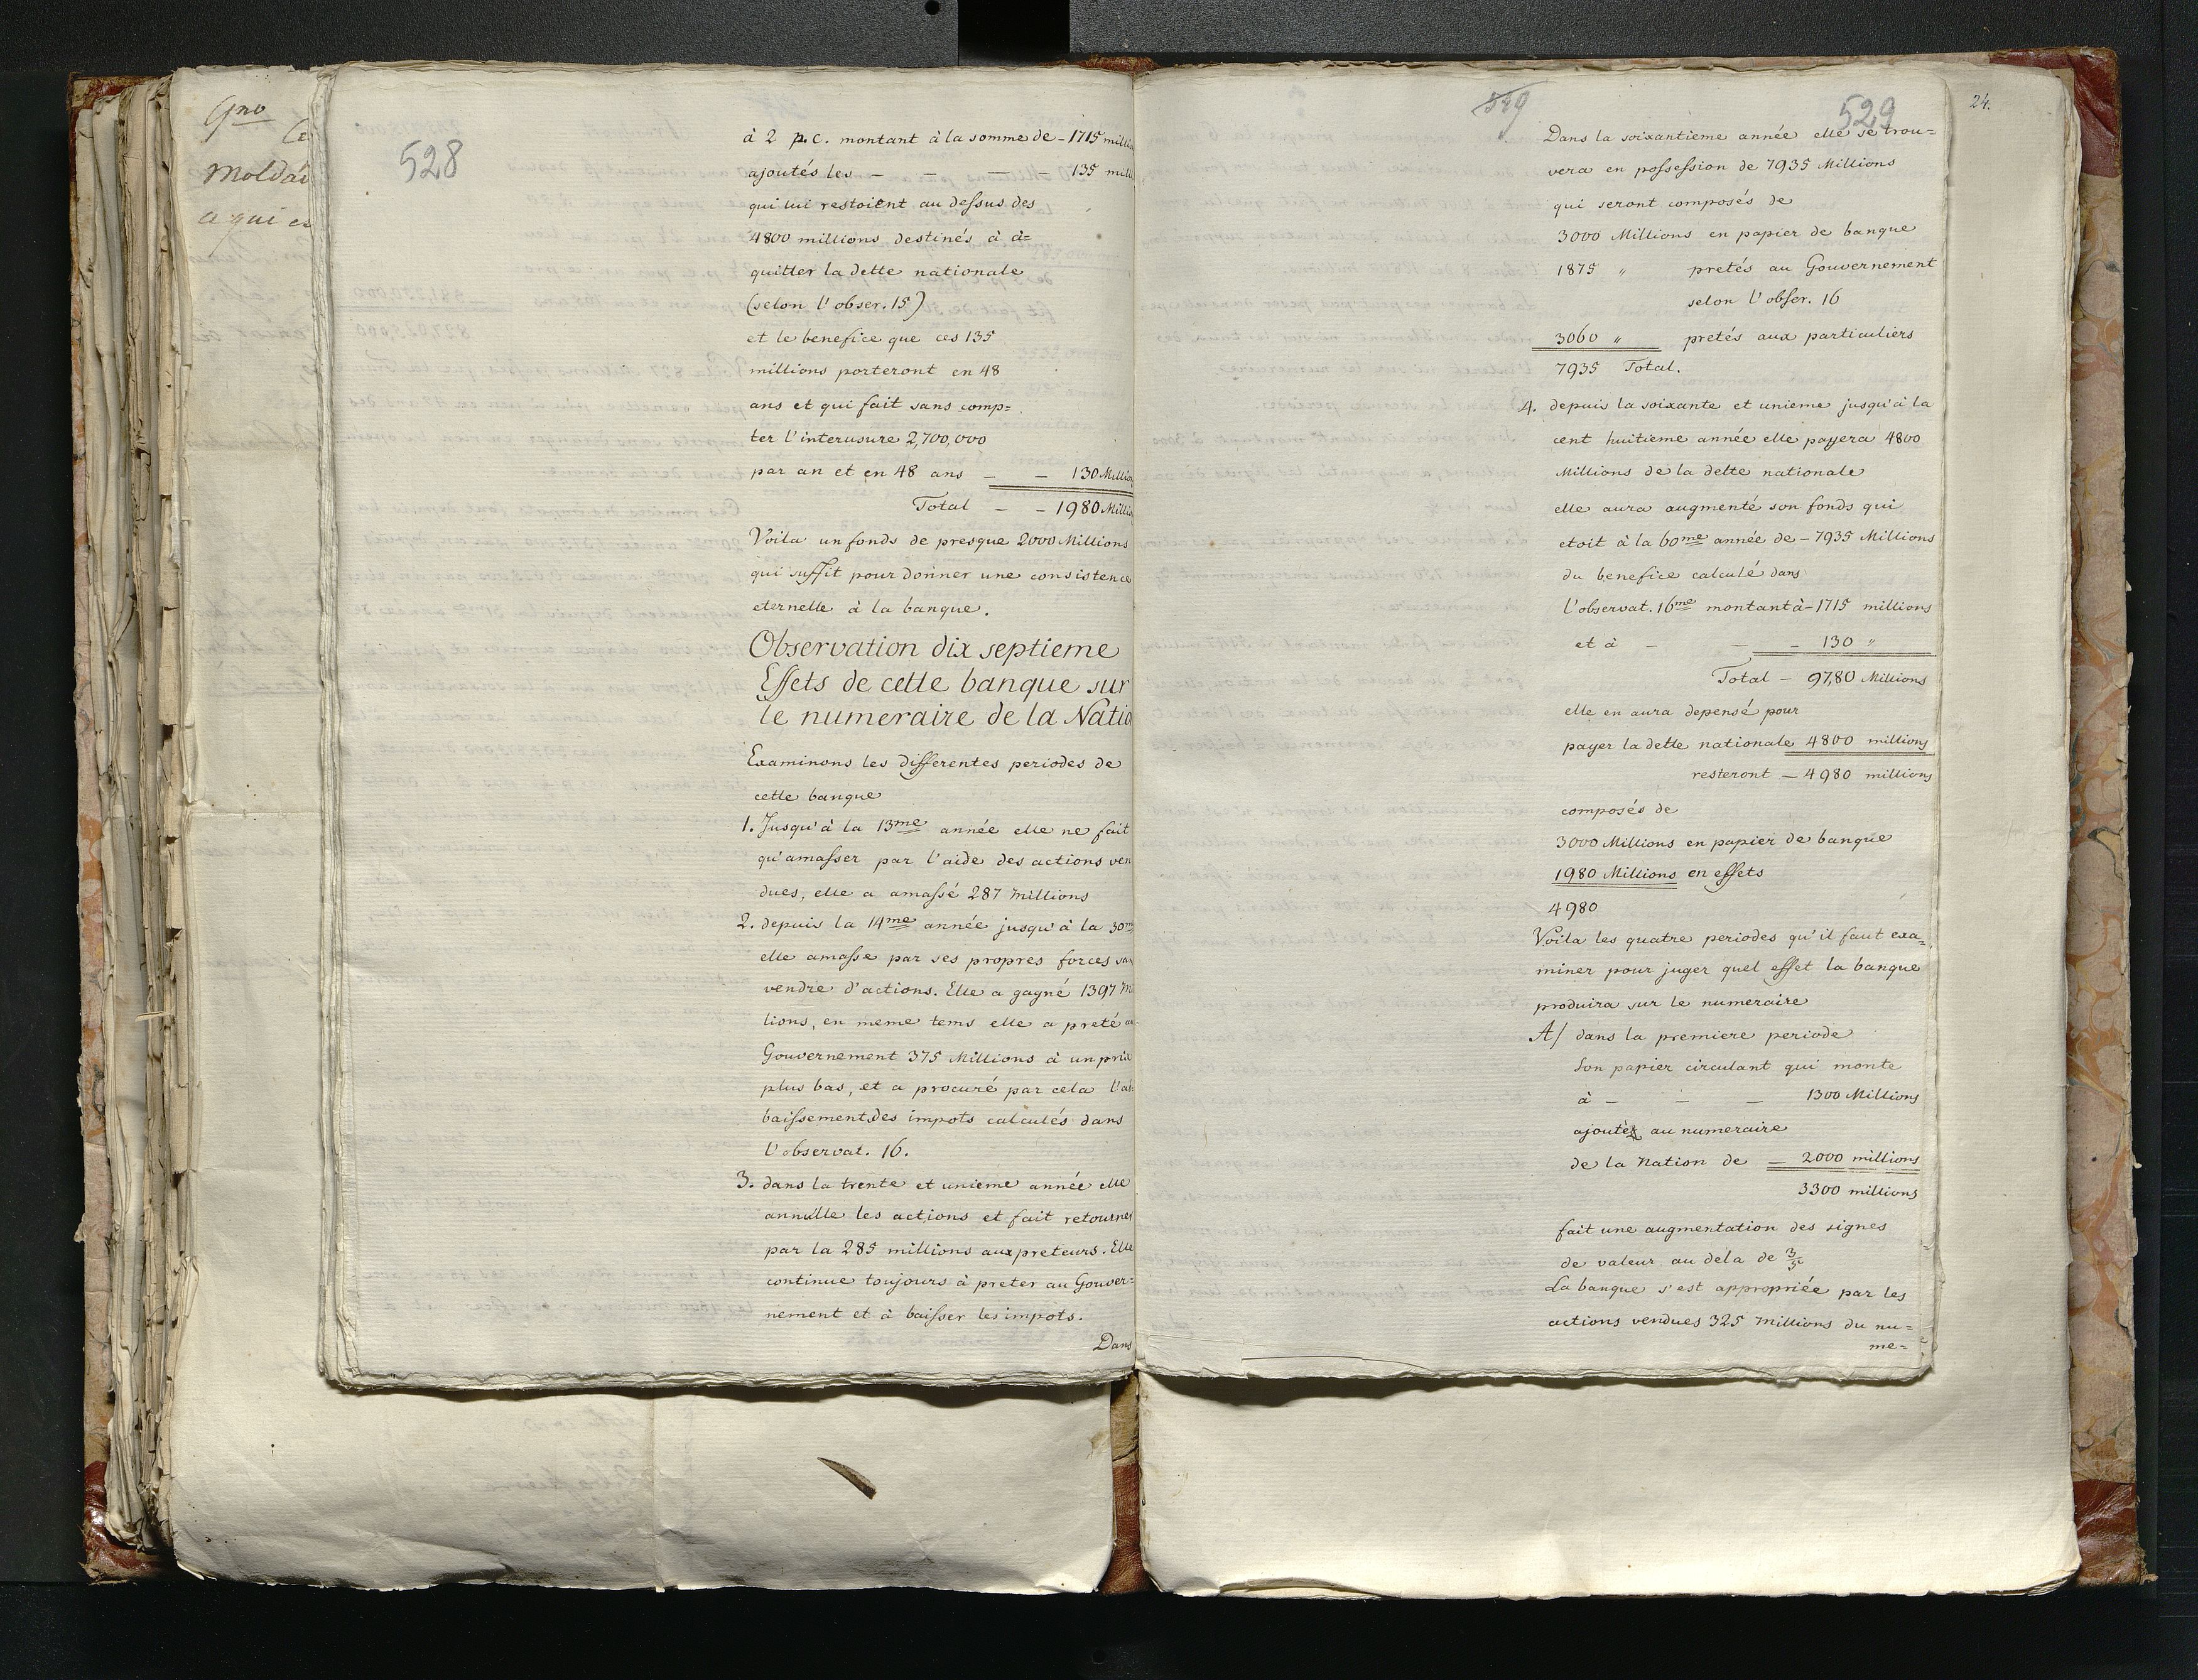 9no
Moldai
a qui es
528
à 2 p.c. montant à la somme de - 1715 millio
ajoutés les - - - - 135 mill
qui lui restoient au dessus des
4800 millions destinés à a=
quitter la dette nationale
(selon l'obser. 15)
et le benefice que ces 135
millions porteront en 48
ans et qui fait sans comp=
ter l'interusure 2,700,000
par an et en 48 ans - - 130 Million
Total - - 1980 Millio
Voila un fonds de presque 2000 Millions
qui suffit pour donner une consistence
eternelle à la banque.
Observation dix septieme
Effets de cette banque sur
le numeraire de la Natio
Examinons les differentes periodes de
cette banque
1. Jusqu'à la 13me année elle ne fait
qu'amasser par l'aide des actions ven
dues, elle a amassé 287 millions
2. depuis la 14me année jusqu'à la 30me
elle amasse par ses propres forces san
vendre d'actions. Elle a gagné 1397 Mi
lions, en meme tems elle a preté au
Gouvernement 375 Millions à un prix
plus bas, et a procuré par cela l'ab=
baissement des impots calculés dans
l'observat. 16.
3. dans la trente et unieme année elle
annulle les actions et fait retourner
par la 285 millions aux preteurs. Elle
continue toujours à preter au Gouver=
nement et à baisser les impots.
Dans
529
529
24.
Dans la soixantieme année elle se trou=
vera en possession de 7935 Millions
qui seront composés de
3000 Millions en papier de banque
1875 " pretés au Gouvernement
selon l'obser. 16
3060 " pretés aux particuliers
7935 Total.
4. depuis la soixante et unieme jusqu'à la
cent huitieme année elle payera 4800
Millions de la dette nationale
elle aura augmenté son fonds qui
etoit à la 60me année de - 7935 Millions
du benefice calculé dans
l'observat. 16me montant à - 1715 millions
et à - - - 130 "
Total - 97,80 Millions
elle en aura depensé pour
payer la dette nationale 4800 millions
resteront - 4980 millions
composés de
3000 Millions en papier de banque
1980 Millions en effets
4980
Voila les quatre periodes qu'il faut exa=
miner pour juger quel effet la banque
produira sur le numeraire
A/ dans la premiere periode
Son papier circulant qui monte
à - - - 1300 Millions
ajouté au numeraire
de la Nation de - 2000 millions
3300 millions
fait une augmentation des signes
de valeur au dela de 3/5
La banque s'est appropriée par les
actions vendues 325 Millions du nu=
me=